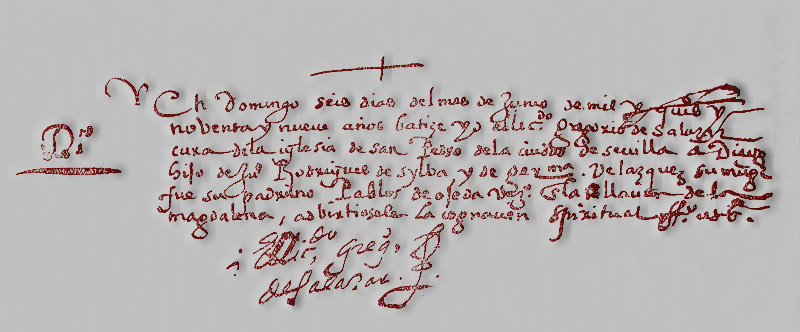 En Domingo seis dias del mes de Junio de mil y quis y
noventa y nueve años batize yo el licdo gregorio de Salazar
cura de la iglesia de san Pedro de la ciudad de sevilla a Diego
hijo de Ju° Rodrigues de sylba y de germa Velazquez su muger
fue su padrino Pablos de ojeda vezº de la collacion de la
magdalena, advirtiosele la cognacion spiritual
Dº
El licdo gregº
de Salazar